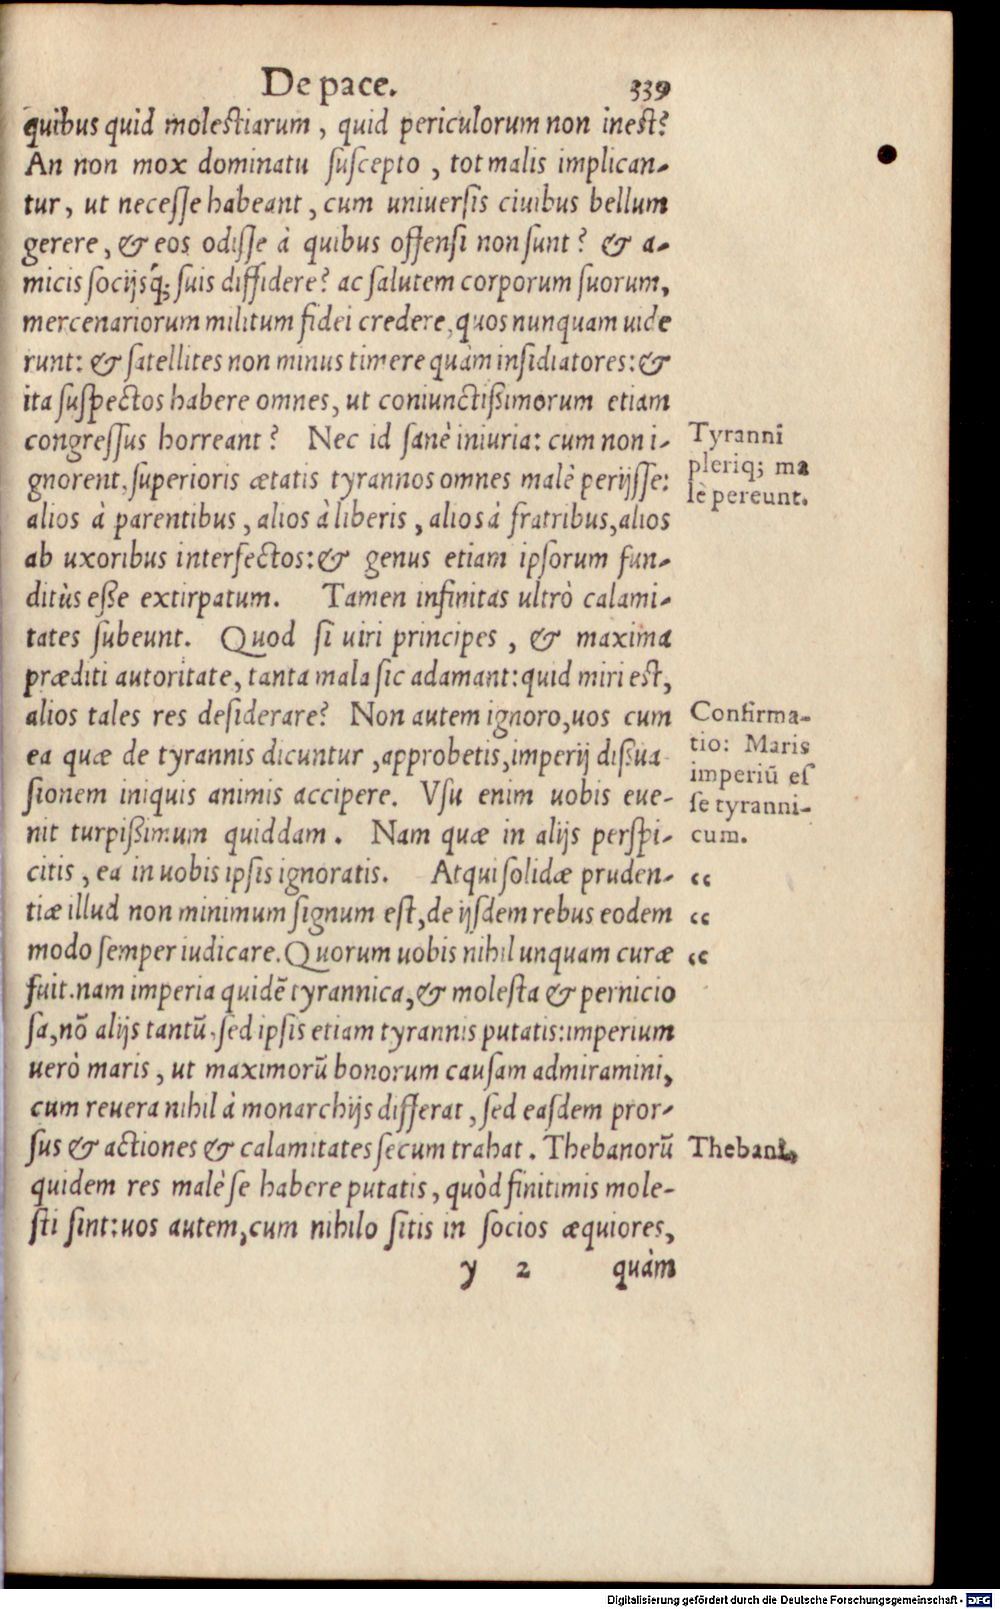 De pace. 339
quibus quid molestiarum, quid periculorum non inest?
An non mox dominatu ſuſcepto, tot malis implican-
tur, ut neceſſe habeant, cum uniuerſis ciuibus bellum
gerere, & eos odiſſe à quibus offenſi non ſunt? & a-
micis ſocijsq́; ſuis diffidere? ac ſalutem corporum ſuorum,
mercenariorum militum fidei credere, quos nunquam uide
runt: & ſatellites non minus timere quàm inſidiatores: &
ita ſuſpectos habere omnes, ut coniunctißimorum etiam
congreſſus horreant? Nec id ſanè iniuria: cum non i-
gnorent, ſuperioris ætatis tyrannos omnes malè perijſſe:
alios à parentibus, alios à liberis, alios à fratribus, alios
ab uxoribus interfectos: & genus etiam ipſorum fun-
ditùs eße extirpatum. Tamen infinitas ultrò calami-
tates ſubeunt. Quod ſi uiri principes, & maxima
præditi autoritate, tanta mala ſic adamant: quid miri est,
alios tales res deſiderare? Non autem ignoro, uos cum
ea quæ de tyrannis dicuntur, approbetis, imperij dißua
ſionem iniquis animis accipere. Vſu enim uobis eue-
nit turpißimum quiddam. Nam quæ in alijs perſpi-
citis, ea in uobis ipſis ignoratis. Atqui ſolidæ pruden-
tiæ illud non minimum ſignum eſt, de ijſdem rebus eodem
modo ſemper iudicare. Quorum uobis nihil unquam curæ
fuit. nam imperia quidē tyrannica, & moleſta & pernicio
ſa, nō alijs tantū, ſed ipſis etiam tyrannis putatis: imperium
uerò maris, ut maximorū bonorum cauſam admiramini,
cum reuera nihil à monarchijs differat, ſed eaſdem pror-
ſus & actiones & calamitates ſecum trahat. Thebanorū
quidem res malè ſe habere putatis, quòd finitimis mole-
ſti ſint: uos autem, cum nihilo ſitis in ſocios æquiores,
y 2 quàm
Tyranni
pleriq; ma
lè pereunt.
Confirma-
tio: Maris
imperiū eſ
ſe tyranni-
cum.
“
“
“
Thebani,
Digitalisierung gefördert durch die Deutsche Forschungsgemeinschaft - DFG